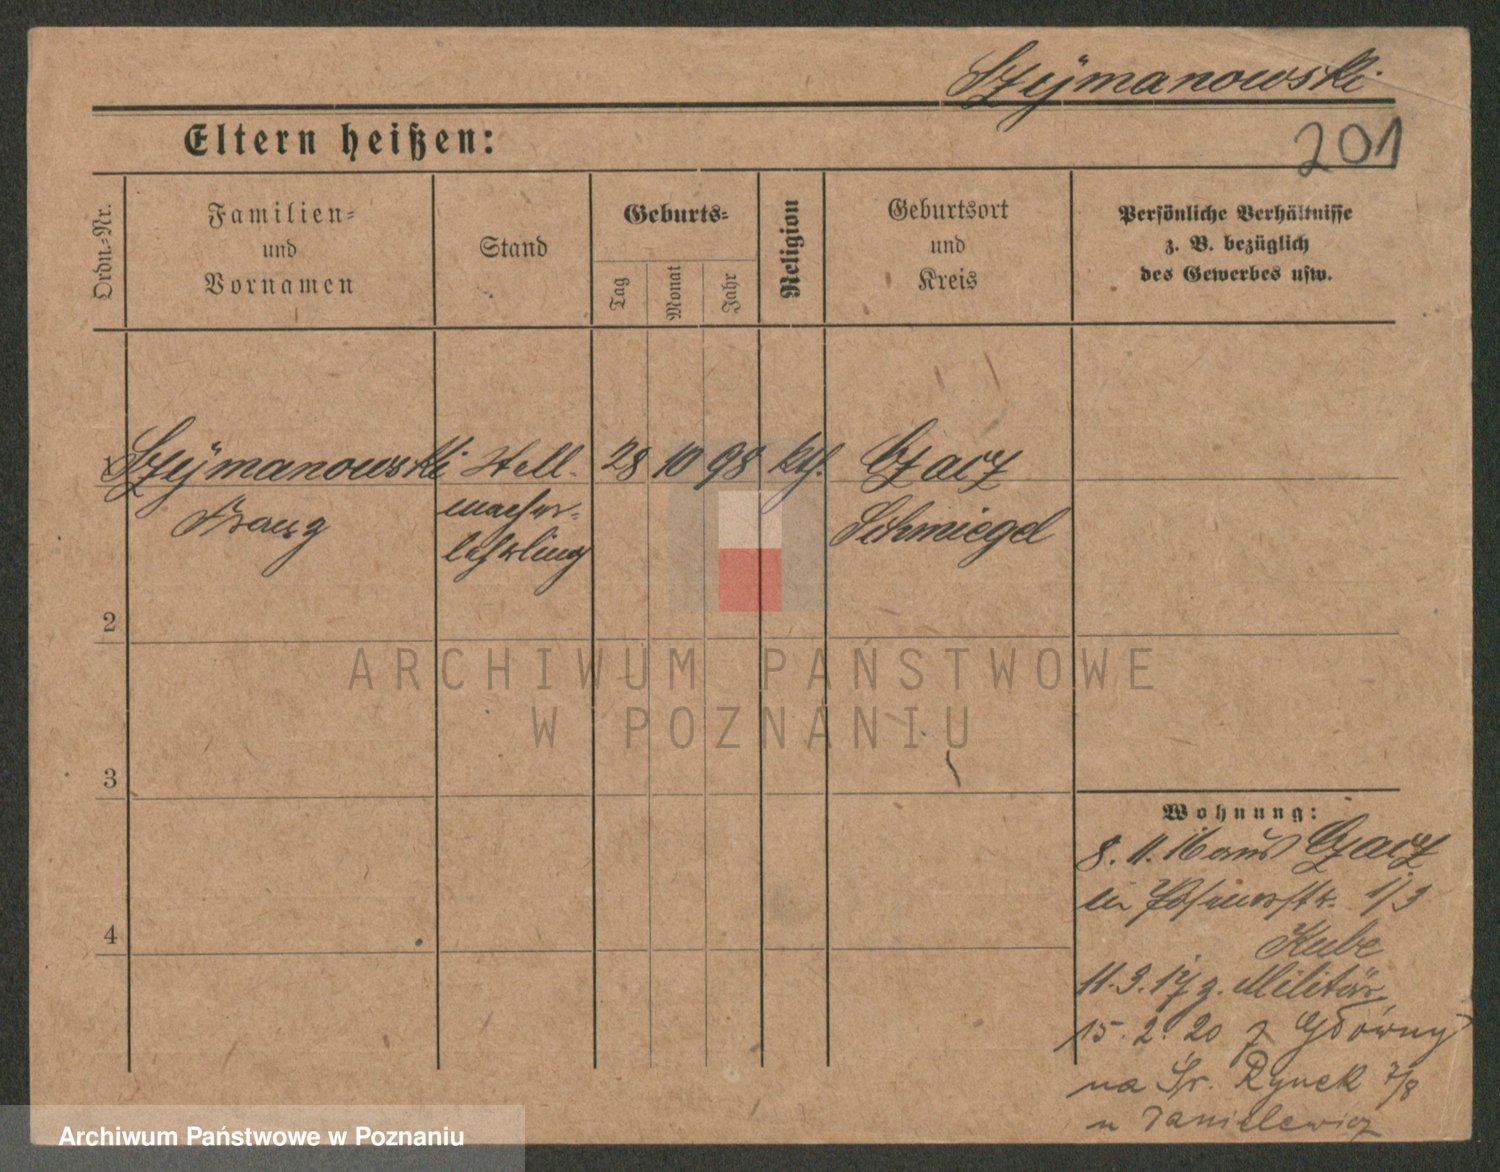 Szÿmanowski
201
Eltern heißen:
Ordn.-Nr.
Familien-
und
Vornamen
Stand
Geburts-
Tag
Monat
Jahr
Religion
Geburtsort
und
Kreis
Persönliche Verhältnisse
z. B. bezüglich
des Gewerbes usw.
1 Szÿmanowski Stell- 28 10 98 kth. Czacz
Franz macher- Schmiegel
lehrling
2
3
4
Wohnung:
8. 11. 16 aus Czacz
in Posenerstr. 1/3
Kube
11. 3. 17 z. Militär
15. 2. 20 z Główny
na Śr. Rynek 7/8
u Danielewicz
ARCHIWUM PAŃSTWOWE
W POZNANIU
Archiwum Państwowe w Poznaniu